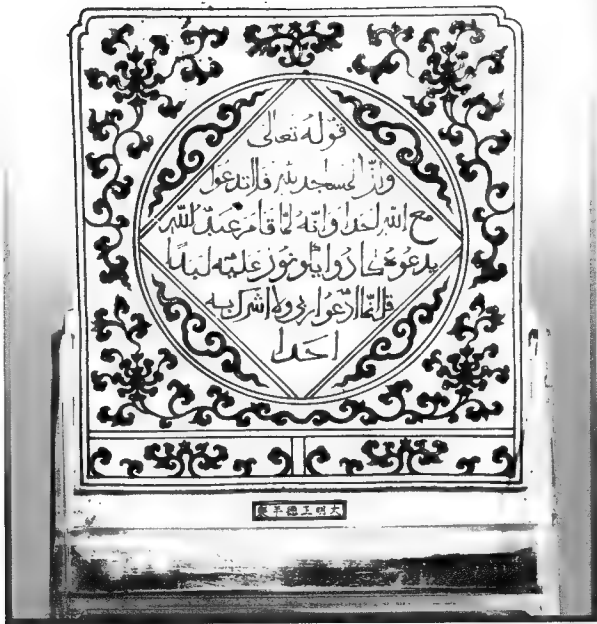 قوله تعالى
وانّ المساجد لله فلا تدعوا
مع الله احدا وانّه لمّا قام عبد الله
يدعوه كادوا يكونون عليه لبدًا
قل انّما ادعوا ربي ولا اشرك به
احدا
大明正德年製